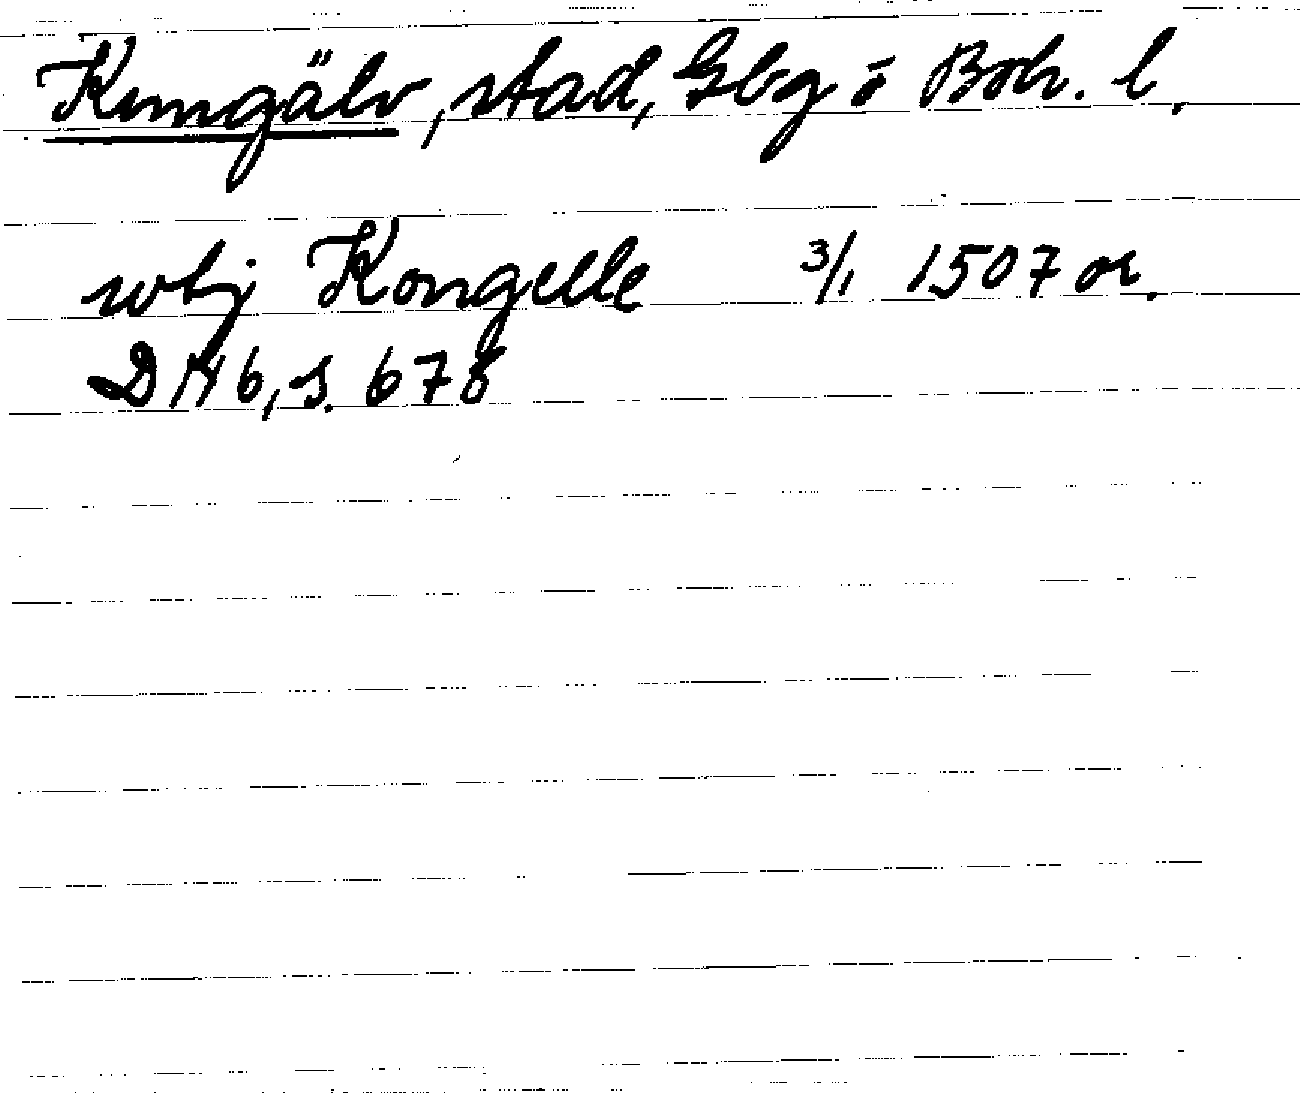 Kungälv, stad, Gbg o Boh. l.
wtj Kongelle 3/1 1507 or.
DN 6, s. 678